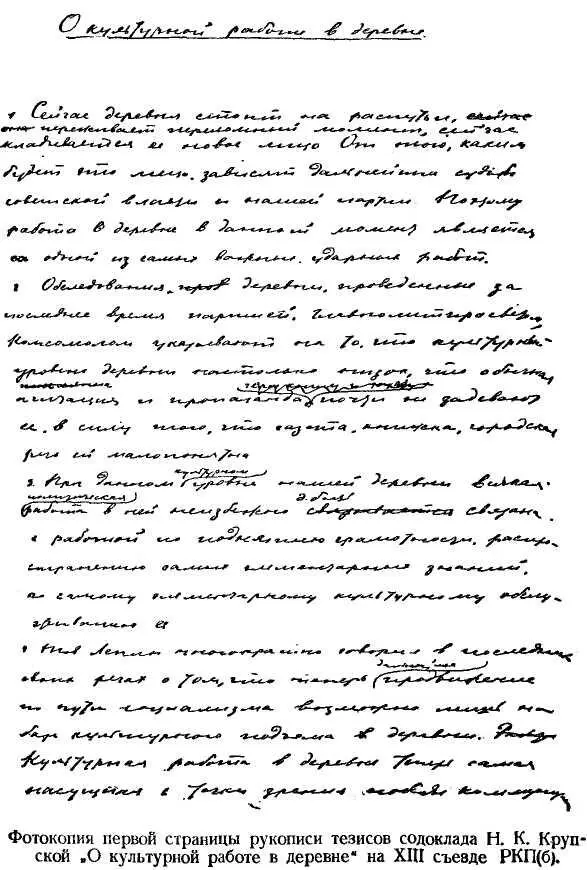 О культурной работе в деревне.
1 Сейчас деревня стоит на распутьи, сейчас
она переживает переломный момент, сейчас
складывается ее новое лицо От того, каким
будет это лицо, зависят дальнейшие судьбы
советской власти и нашей партии Поэтому
работа в деревне в данный момент является
одной из самых важных, ударных работ.
2 Обследования деревни, проведенные за
последнее время партией, Главполитпросветом,
Комсомолом указывают на то, что культурный
уровень деревни настолько низок, что обычная
агитация и пропаганда почти не задевают
ее, в силу того, что газета, книжка, городская
речь ей малопонятна
3. При данном культурном уровне нашей деревни всякая
политическая работа в ней неизбежно д. быть связана
с работой по поднятию грамотности, распро-
странению самых элементарных знаний,
по самому элементарному культурному обслу-
живанию ее
Тов Ленин многократно говорил в последних
своих речах о том, что теперь дальнейшее продвижение
по пути социализма возможно лишь на
базе культурного подъема в деревне.
Культурная работа в деревне теперь самая
насущная с точки зрения
Фотокопия первой страницы рукописи тезисов содоклада Н. К. Круп-
ской „О культурной работе в деревне“ на XIII съезде РКП(б).